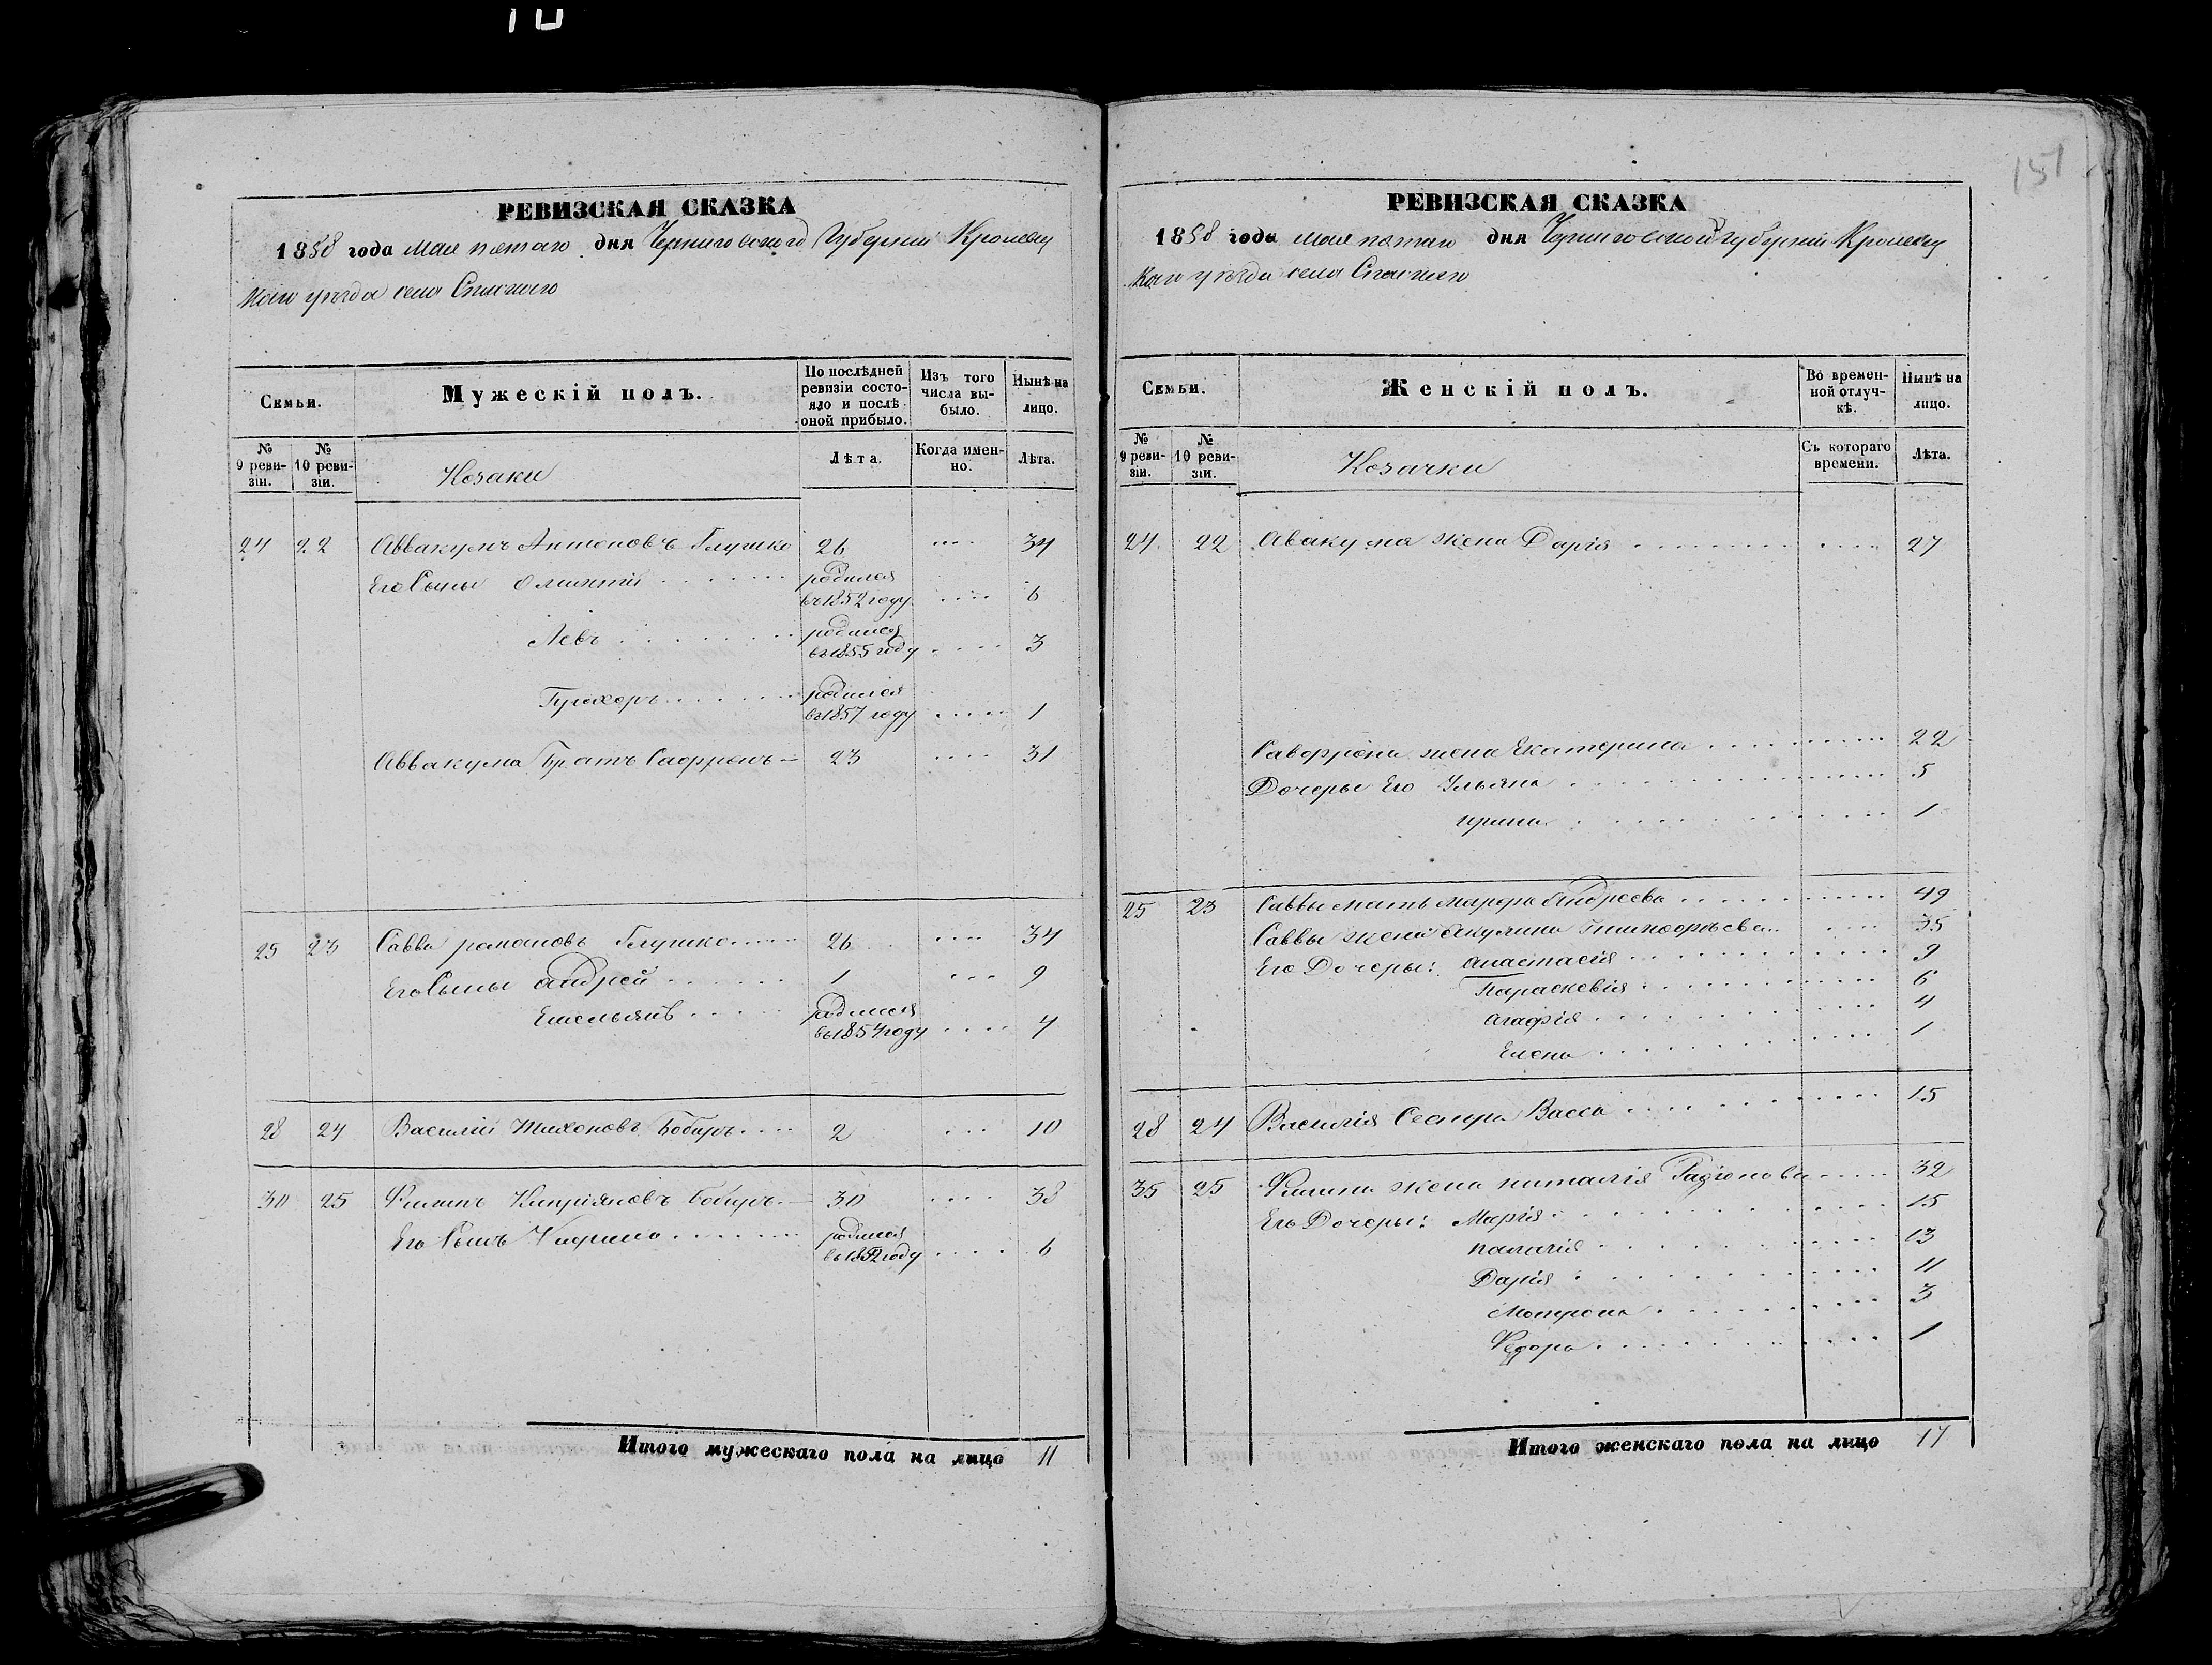 151
РЕВИЗСКАЯ СКАЗКА
1858 года мая пятаго дня Черниговской Губерніи Кролевец
каго уезда села Спаскаго
Семьи.
Мужескій полъ.
По послѣдней ревизіи состояло и послѣ оной прибыло.
Изъ того числа выбыло.
Нынѣ на лицо.
№ 9 ревизіи.
№ 10 ревизіи.
Козаки
Лѣта.
Когда именно.
Лѣта.
24 22 Аввакумъ Антоновъ Глушко 26 34
Его Сыны родился
въ 1852 году 6
Левъ родился
въ 1855 году 3
родился
въ 1857 году 1
Аввакума Братъ Сафронъ 23 31
25 23 Савва романовъ Глушко 26 34
Его Сыны андрей 1 9
Емельянъ родился
въ 1854 году 4
28 24 Василий Тихоновъ Бобырь 2 10
30 25 Филипъ Киприяновъ Бобырь 30 38
Его Сынъ родился
въ 1852 году 6
Итого мужескаго пола на лицо 11
РЕВИЗСКАЯ СКАЗКА
1858 года мая пятаго дня Черниговской Губерніи Кролевец
каго уезда села Спаскаго
Семьи.
Женскій полъ.
Во временной отлучкѣ.
Нынѣ на лицо.
№ 9 ревизіи.
№ 10 ревизіи.
Козачки
Съ котораго времени.
Лѣта.
24 22 Авакума жена Дарія 27
Савофрона жена Екатерина 22
Дочеры Его Ульяна 5
ирина 1
25 23 Саввы мать марфа Андреева 49
Саввы жена Акулина 35
Его Дочеры: анастасія 9
Параскевія 6
агафія 4
Елена 1
28 24 Василія Сестра Васса 15
35 25 Филипа жена наталія Радіонова 32
Его Дочеры: Марія 15
палагія 13
Дарія 11
Мотрона 3
Федора 1
Итого женскаго пола на лицо 17